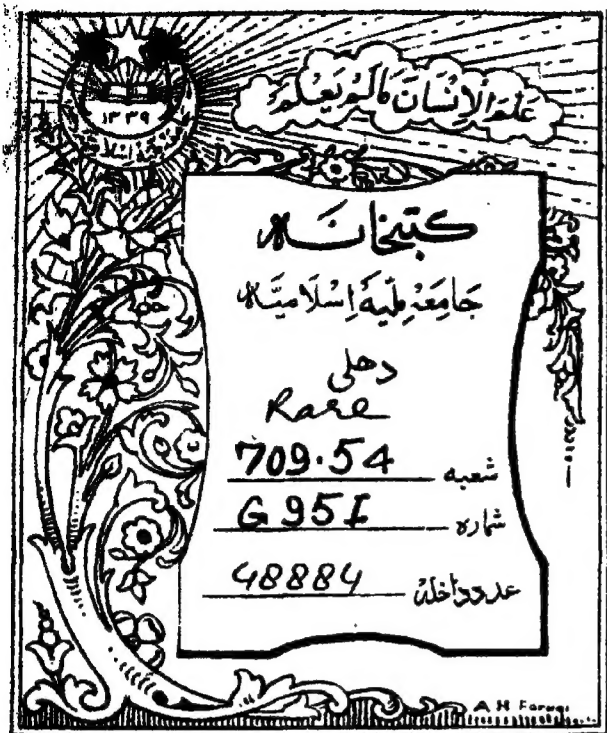 علم الانسان مالم يعلم
١٣٣٩
کتبخانہ
جامعہ ملیہ اسلامیہ
دھلی
Rare
شعبه 709.54
شماره G95I
عدد داخلہ 48884
A H Faruqi